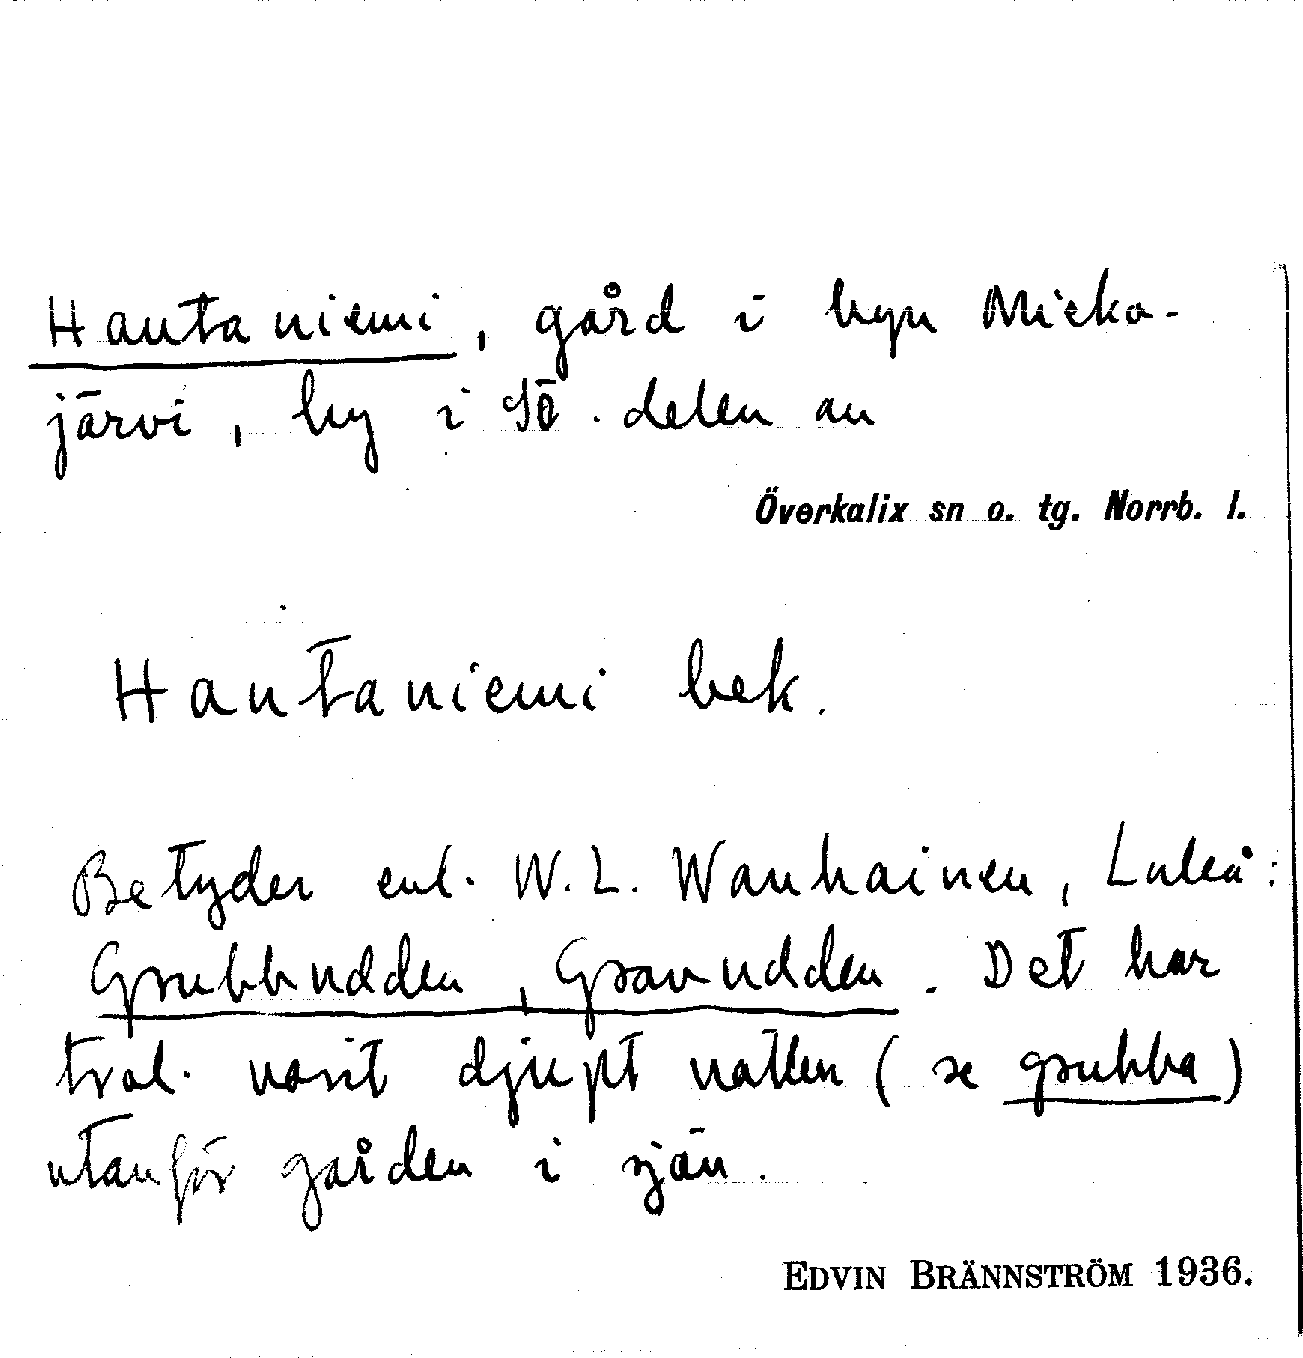 Hautaniemi, gård i byn Micko-
järvi, by i sö. delen av
Överkalix sn o. tg. Norrb. l.
Hautaniemi bek.
Betyder enl. W. L. Wanhainen, Luleå:
Grubbudden, Gravudden. Det har
trol. varit djupt vatten (se grubba)
utanför gården i sjön.
EDVIN BRÄNNSTRÖM 1936.